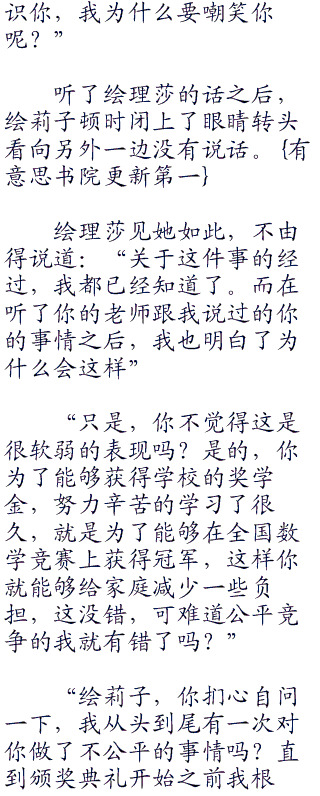 识你，我为什么要嘲笑你
呢？”
听了绘理莎的话之后，
绘莉子顿时闭上了眼睛转头
看向另外一边没有说话。{有
意思书院更新第一}
绘理莎见她如此，不由
得说道：“关于这件事的经
过，我都已经知道了。而在
听了你的老师跟我说过的你
的事情之后，我也明白了为
什么会这样”
“只是，你不觉得这是
很软弱的表现吗？是的，你
为了能够获得学校的奖学
金，努力辛苦的学习了很
久，就是为了能够在全国数
学竞赛上获得冠军，这样你
就能够给家庭减少一些负
担，这没错，可难道公平竞
争的我就有错了吗？”
“绘莉子，你扪心自问
一下，我从头到尾有一次对
你做了不公平的事情吗？直
到颁奖典礼开始之前我根